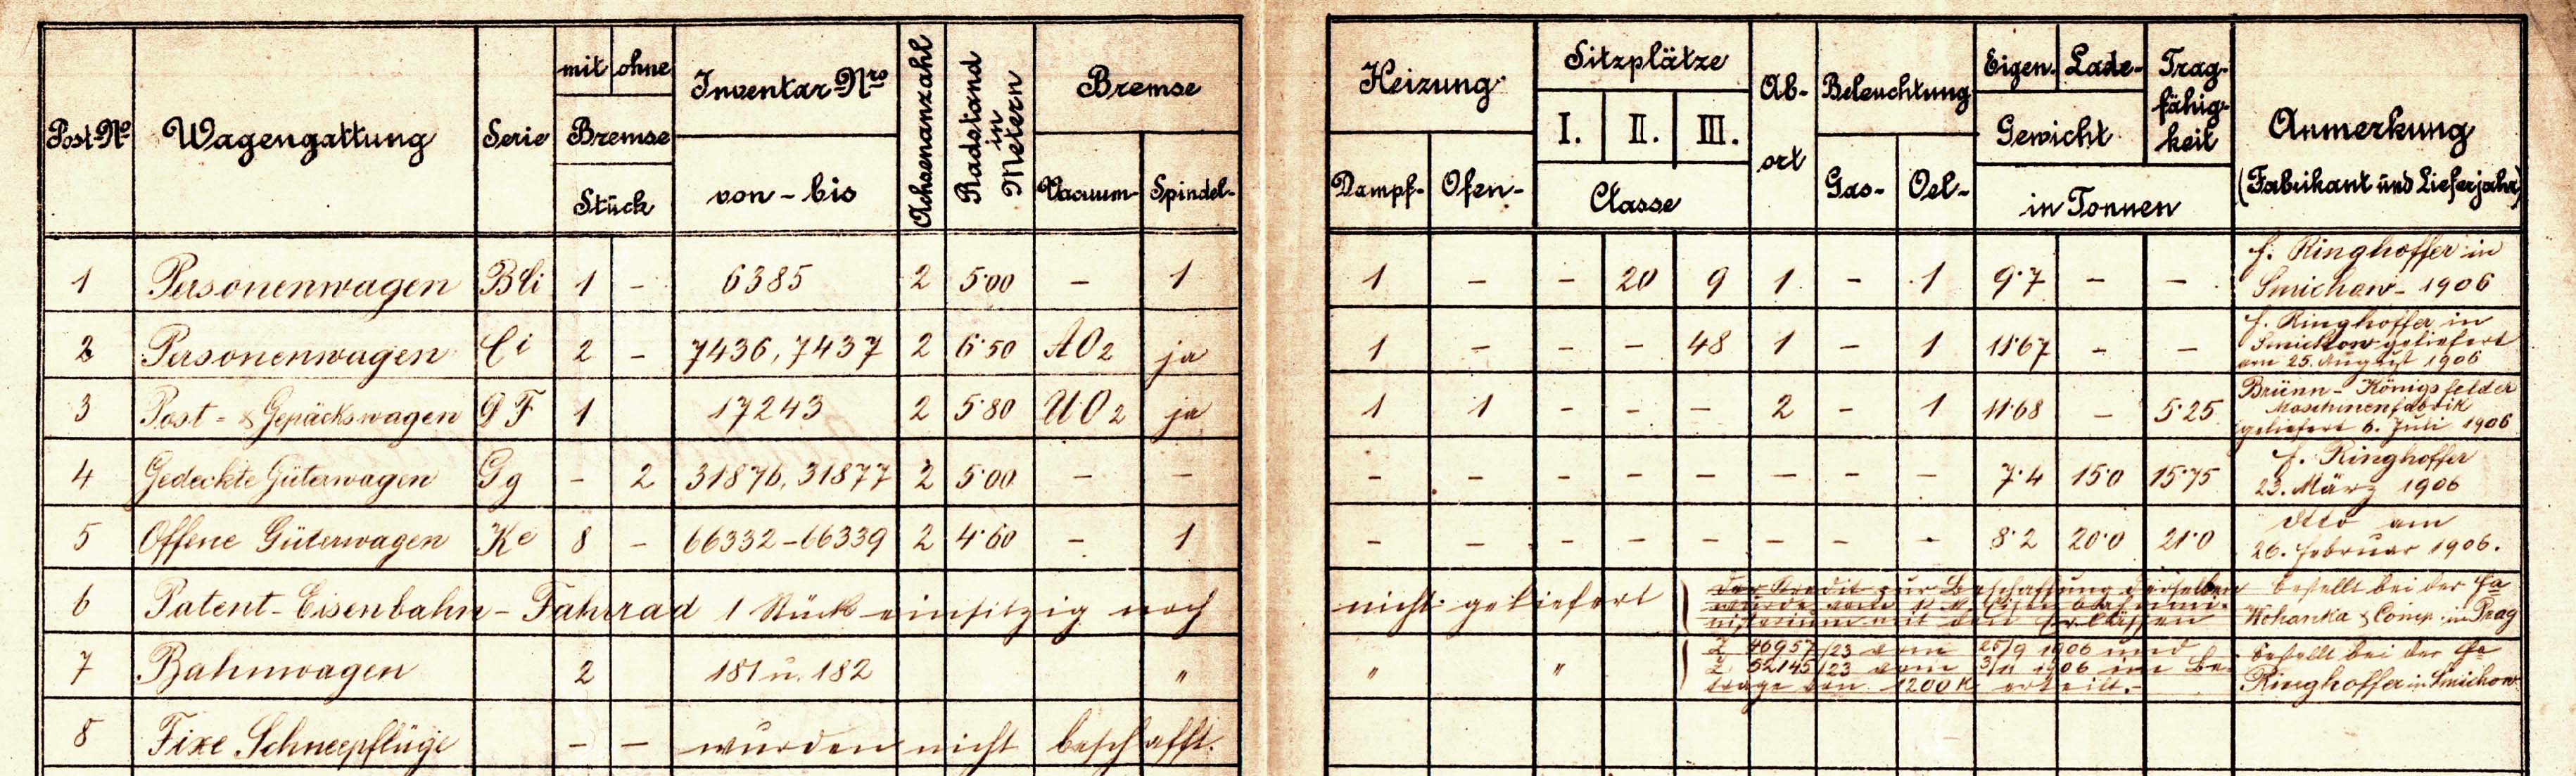 Post-No Wagengattung Serie mit ohne Bremse Stück Inventar-Nro von - bis Achsenanzahl Radstand in Metern Bremse Vacuum- Spindel- Heizung Dampf- Ofen- Sitzplätze I. II. III. Classe Ab-ort Beleuchtung Gas- Oel- Eigen- Lade- Gewicht Trag-fähig-keit in Tonnen Anmerkung (Fabrikant und Lieferjahr)
1 Personenwagen BCi 1 - 6385 2 5·00 - 1 1 - - 20 9 1 - 1 9·7 - - F. Ringhoffer in
Smichow - 1906
2 Personenwagen Ci 2 - 7436, 7437 2 6·50 AO2 ja 1 - - - 48 1 - 1 11·67 - - F. Ringhoffer in
Smichow geliefert
am 25. August 1906
3 Post- & Gepäckswagen DF 1 17243 2 5·80 UO2 ja 1 1 - - - 2 - 1 11·68 - 5·25 Brünn - Königsfelder
Maschinenfabrik
geliefert 6. Juli 1906
4 Gedeckte Güterwagen Gg - 2 31876, 31877 2 5·00 - - - - - - - - - - 7·4 15·0 15·75 F. Ringhoffer
23. März 1906
5 Offene Güterwagen Ke 8 - 66332-66339 2 4·60 - 1 - - - - - - - - 8·2 20·0 21·0 dtto am
26. Februar 1906.
6 Patent-Eisenbahn-Fahrrad 1 Stück einsitzig noch nicht geliefert
Der Kredit zur Beschaffung derselben
wurde vom k. k. Eisenbahnmi-
nisterium mit den Erlässen
Z 46957/23 vom 25/9 1906 und
Z 52145/23 vom 3/11 1906 im Be-
trage von 1200 K erteilt.-
bestellt bei der Fa
Kohanka & Comp. in Prag
7 Bahnwagen 2 181 u. 182 " " " bestellt bei der Fa
Ringhoffer in Smichow
8 Fixe Schneepflüge - - wurden nicht beschafft.